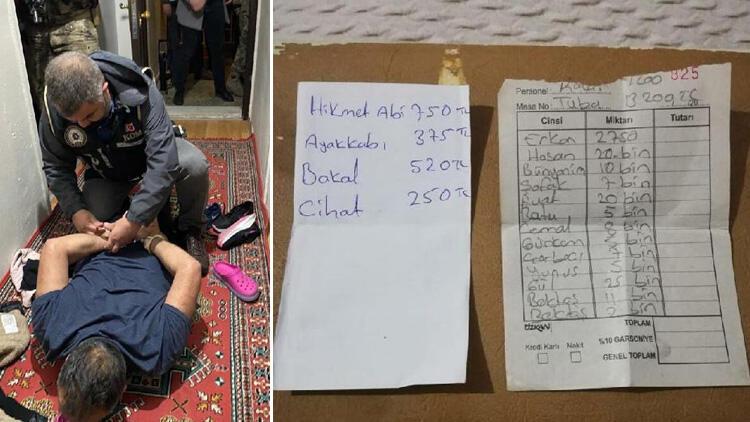 KOM
Hikmet Abi 750 TL
Ayakkabı 375 TL
Bakal 520 TL
Cihat 250 TL
Personel: 1200 825
Masa No: Tuba
Cinsi Miktarı Tutarı
Erkan 2750
Hasan 20 bin
Bünyamin 10 bin
7 bin
Fuat 20 bin
5 bin
Cemal bin
Gürkan bin
bin
Yunus bin
Gül 25 bin
Bektaş 11 bin
Bektaş 2 bin
TOPLAM
Kredi Kartı Nakit %10 GARSONİYE
GENEL TOPLAM